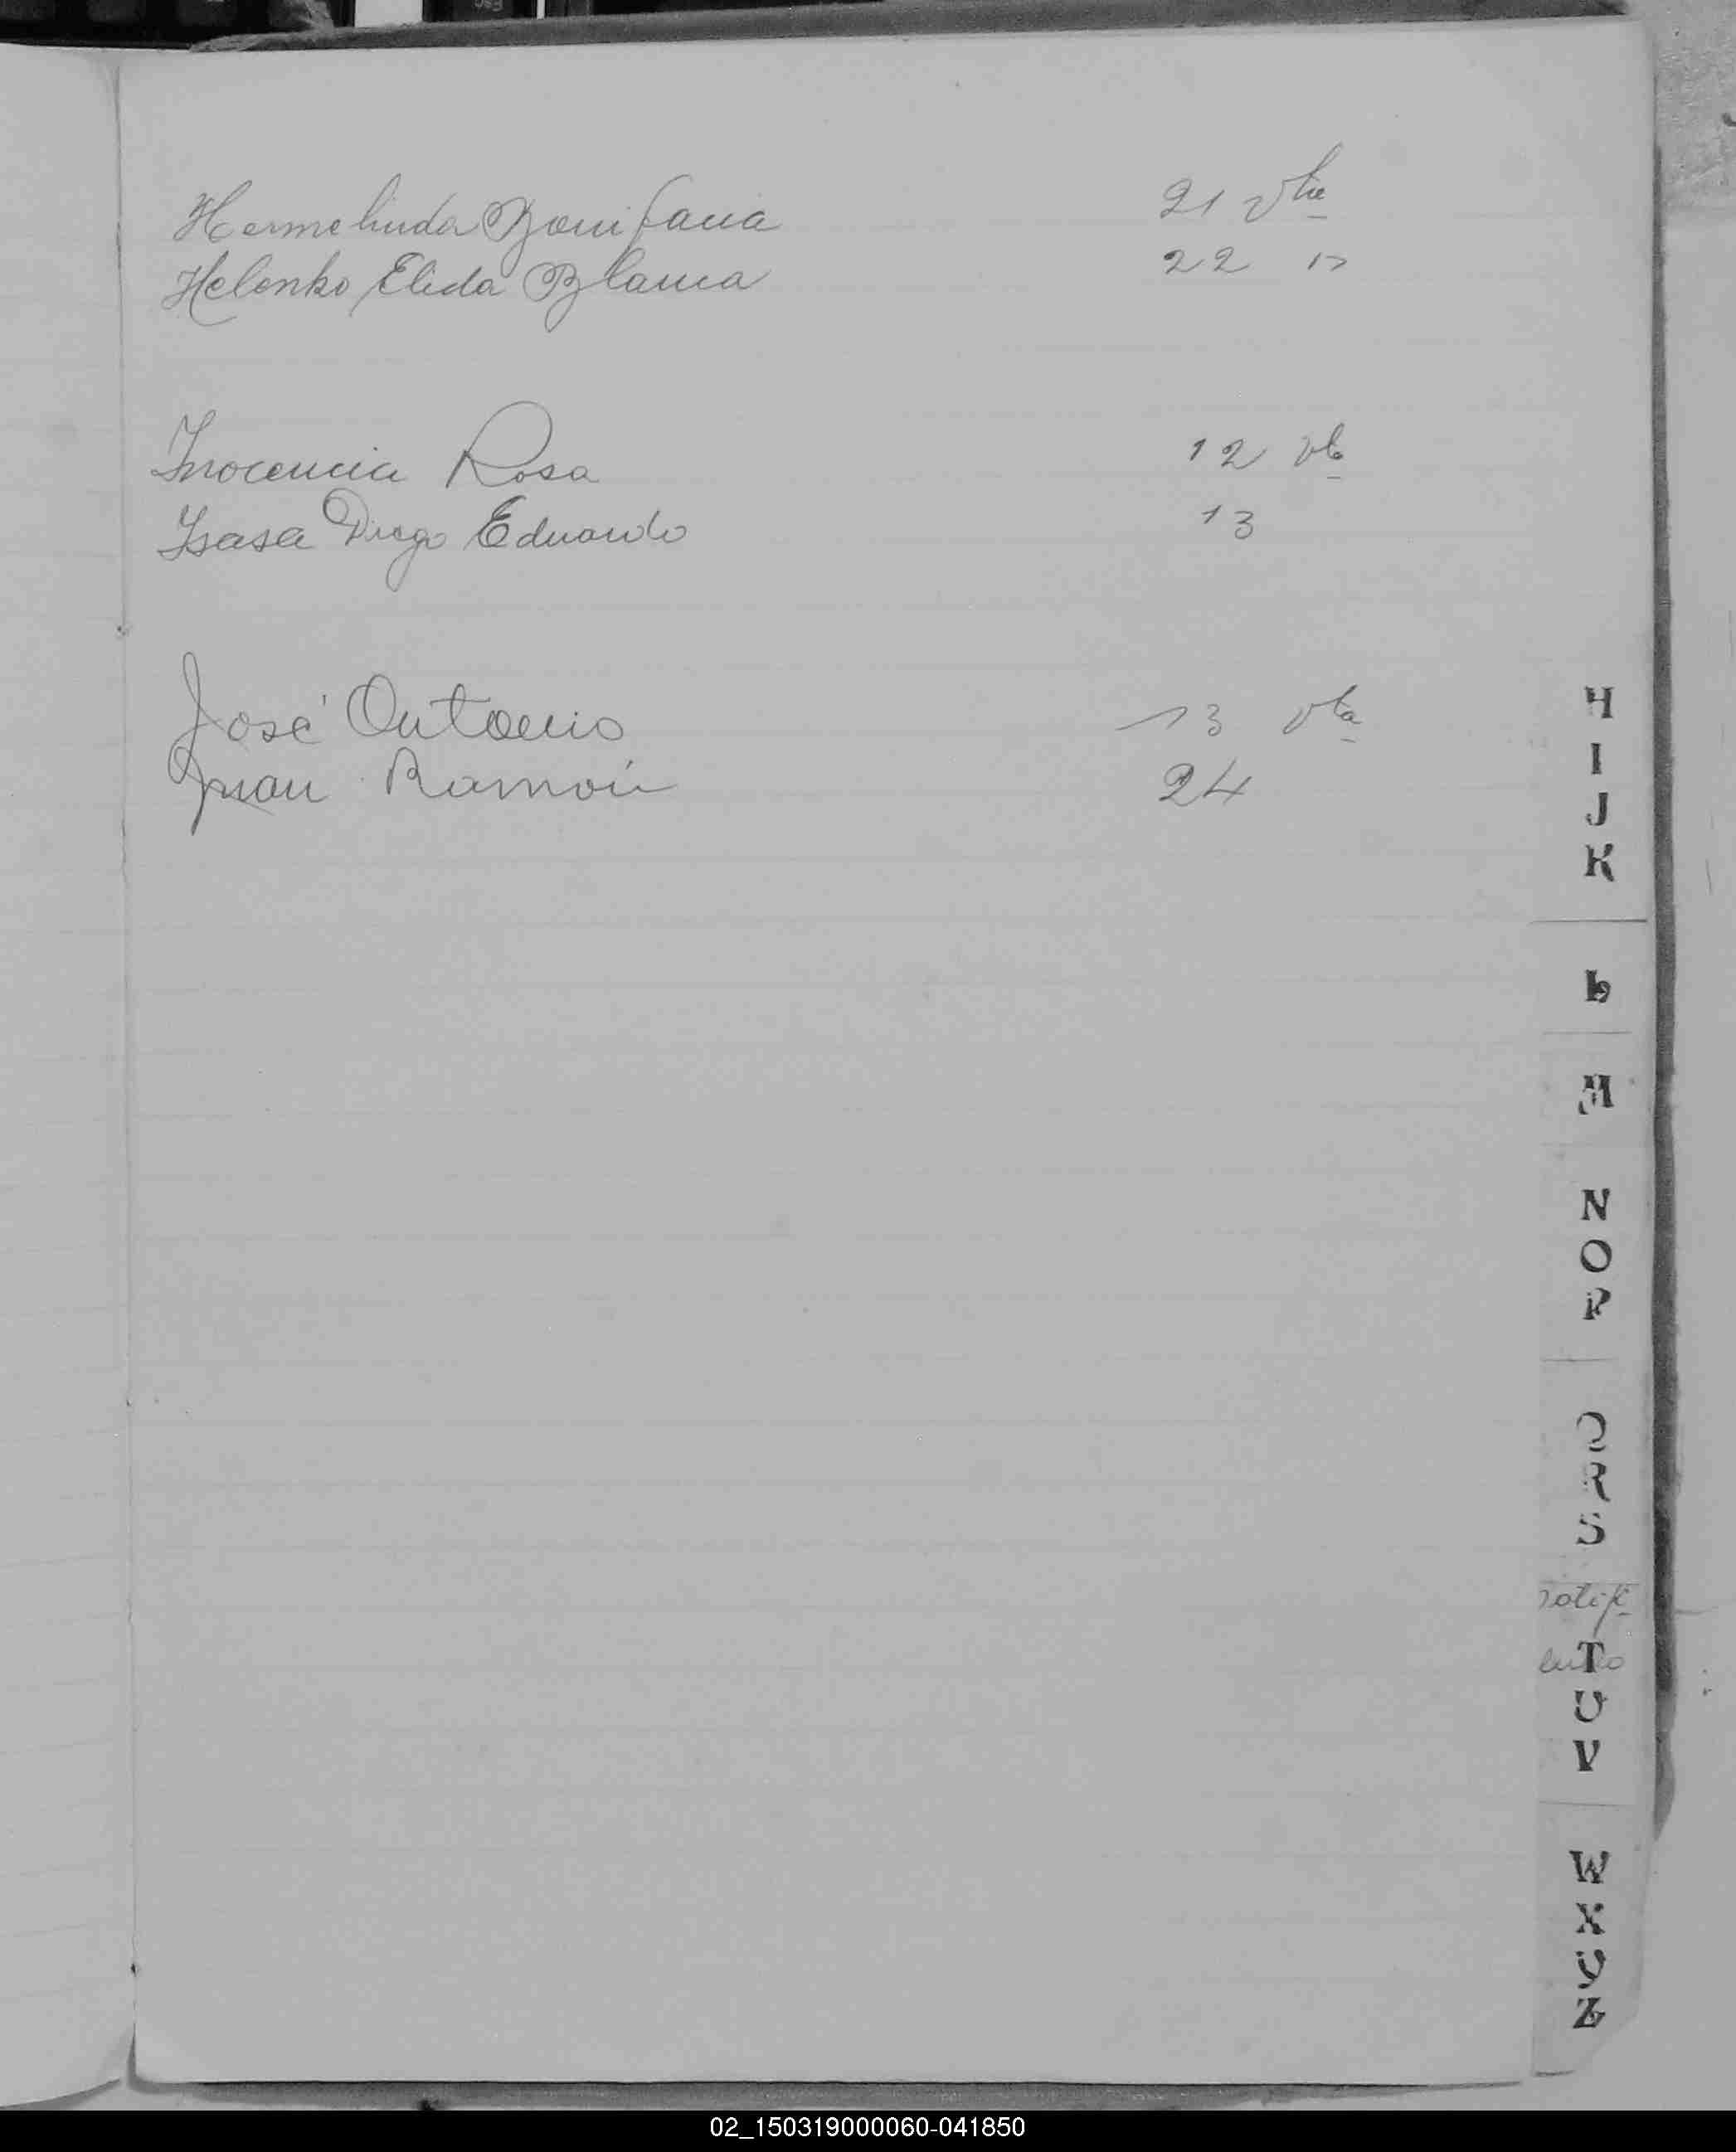 Hermelinda Bonifacia 21 vta
Helenko Elida Blanca 22 "
Inocencia Rosa 12 vta
Isasa Diego Eduardo 13
José Antonio 13 vta
Juan Ramón 24
H
I
J
K
L
M
N
O
P
Q
R
S
T
U
V
W
X
Y
Z
02_150319000060-041850